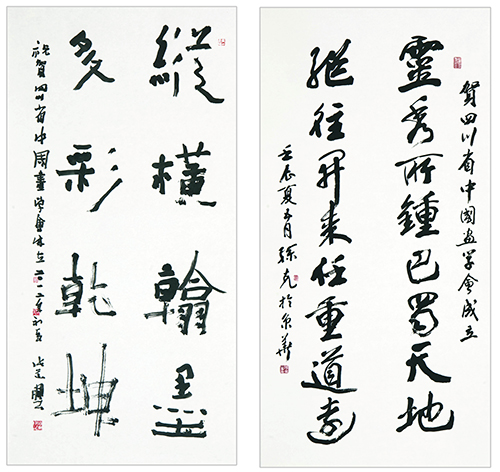 賀四川省中國画学會成立
靈秀所鍾巴蜀天地
繼往開來任重道遠
壬辰夏五月孫克於京華
縱橫翰墨
多彩乾坤
祝賀四川省中國畫學會成立二〇一二年初夏